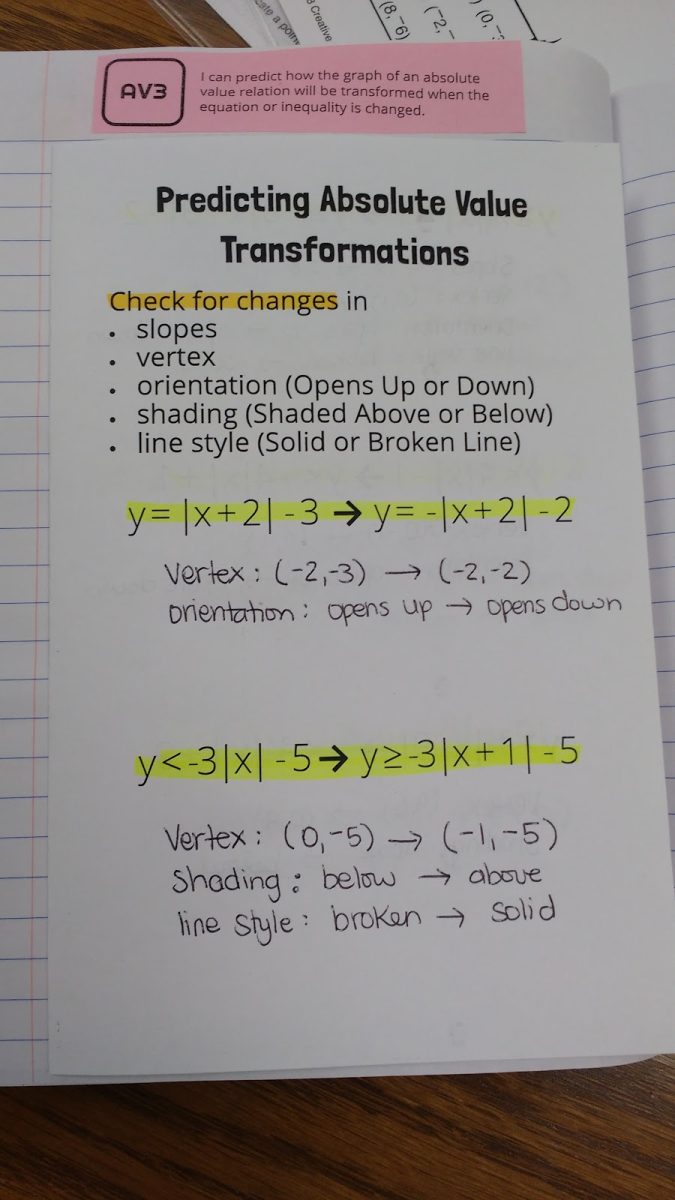 ate a point
8 Creative
(8,-6)
(-2,-
(0,-
AV3
I can predict how the graph of an absolute
value relation will be transformed when the
equation or inequality is changed.
Predicting Absolute Value
Transformations
Check for changes in
• slopes
• vertex
• orientation (Opens Up or Down)
• shading (Shaded Above or Below)
• line style (Solid or Broken Line)
y=|x+2|-3→y=-|x+2|-2
Vertex: (-2,-3) → (-2,-2)
orientation: opens up → opens down
y<-3|x|-5→y≥-3|x+1|-5
Vertex: (0,-5) → (-1,-5)
Shading: below → above
line style: broken → solid